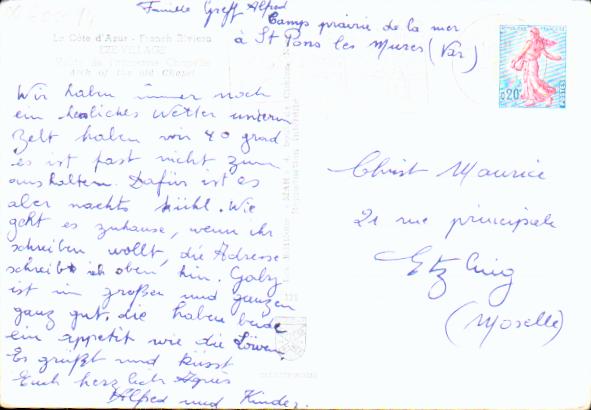 Famille Greff Alfred
Camps prairie de la mer
à St Pons les Mures (Var)
La Côte d'Azur - French Riviera
EZE VILLAGE
Arch of the old Chapel
Wir haben immer noch
ein herliches Wetter unterm
Zelt haben wir 40 grad
es ist fast nicht zum
aushalten. Dafür ist es
aber nachts kühl. Wie
geht es zuhause, wenn ihr
schreiben wollt, die Adresse
schreibt ich oben hin. Gaby
ist im großen und ganzen
ganz gut, die haben beide
ein appetit wie die Löwen.
Es grüßt und küsst
Euch herzlich Agnès
Alfred und Kinder.
0,20
Christ Maurice
21 rue principale
Etzling
(Moselle)